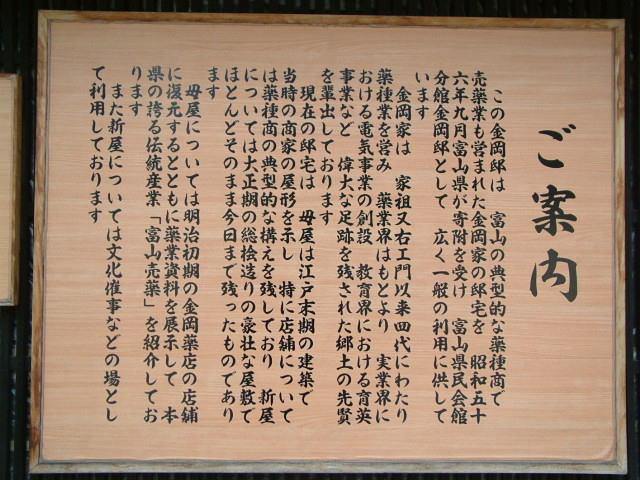 ご案内
この金岡邸は　富山の典型的な薬種商で
売薬業も営まれた金岡家の邸宅を　昭和五十
六年九月富山県が寄附を受け　富山県民会館
分館金岡邸として　広く一般の利用に供して
います
金岡家は　家祖又右エ門以来四代にわたり
薬種業を営み　薬業界はもとより　実業界に
おける電気事業の創設　教育界における育英
事業など　偉大な足跡を残された郷土の先賢
を輩出しております
現在の邸宅は　母屋は江戸末期の建築で
当時の商家の屋形を示し　特に店舗について
は薬種商の典型的な構えを残しており　新屋
については大正期の総桧造りの豪壮な屋敷で
ほとんどそのまま今日まで残ったものであり
ます
母屋については明治初期の金岡薬店の店舗
に復元するとともに薬業資料を展示して　本
県の誇る伝統産業「富山売薬」を紹介してお
ります
また新屋については文化催事などの場とし
て利用しております